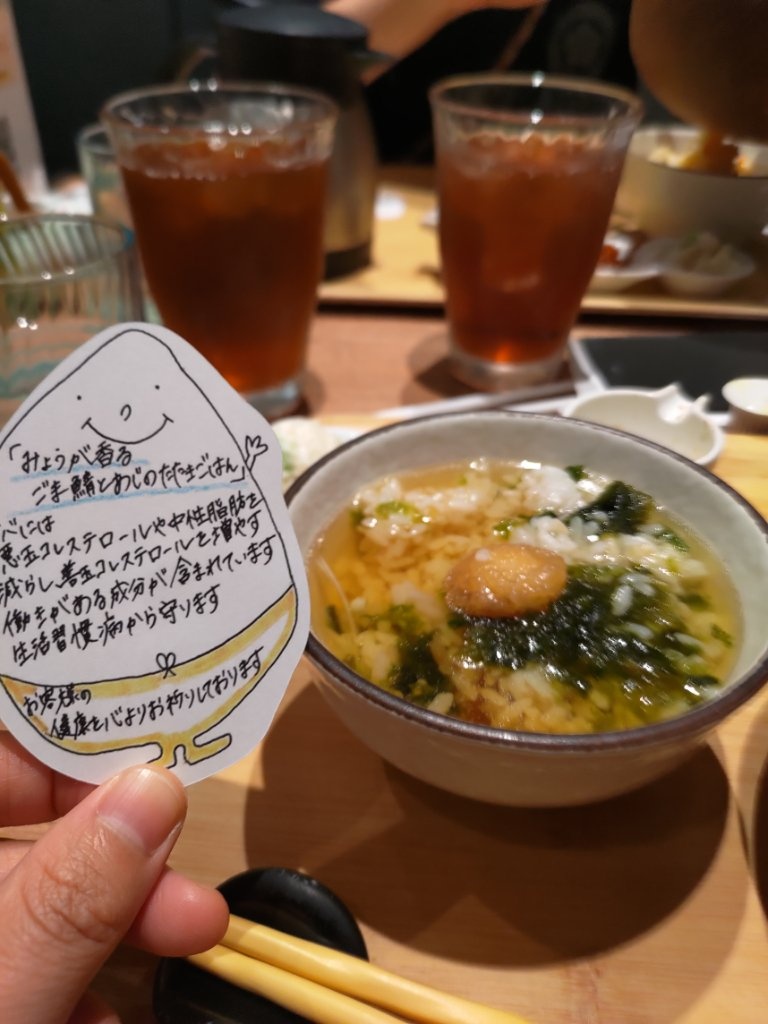 「みょうが香る
ごま鯖とあじのたたきごはん」
には
悪玉コレステロールや中性脂肪を
減らし、善玉コレステロールを増やす
働きがある成分が含まれています
生活習慣病から守ります
お客様の
健康を心よりお祈りしております